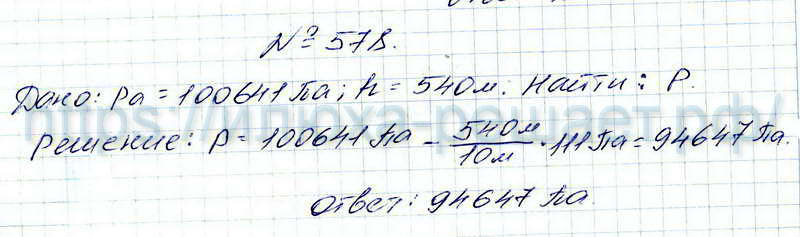 № 578.
Дано: Pa = 100641 Па; h = 540 м. Найти: P.
https://илюха-решает.рф/
Решение: P = 100641 Па - 540 м / 10 м · 111 Па = 94647 Па.
Ответ: 94647 Па.